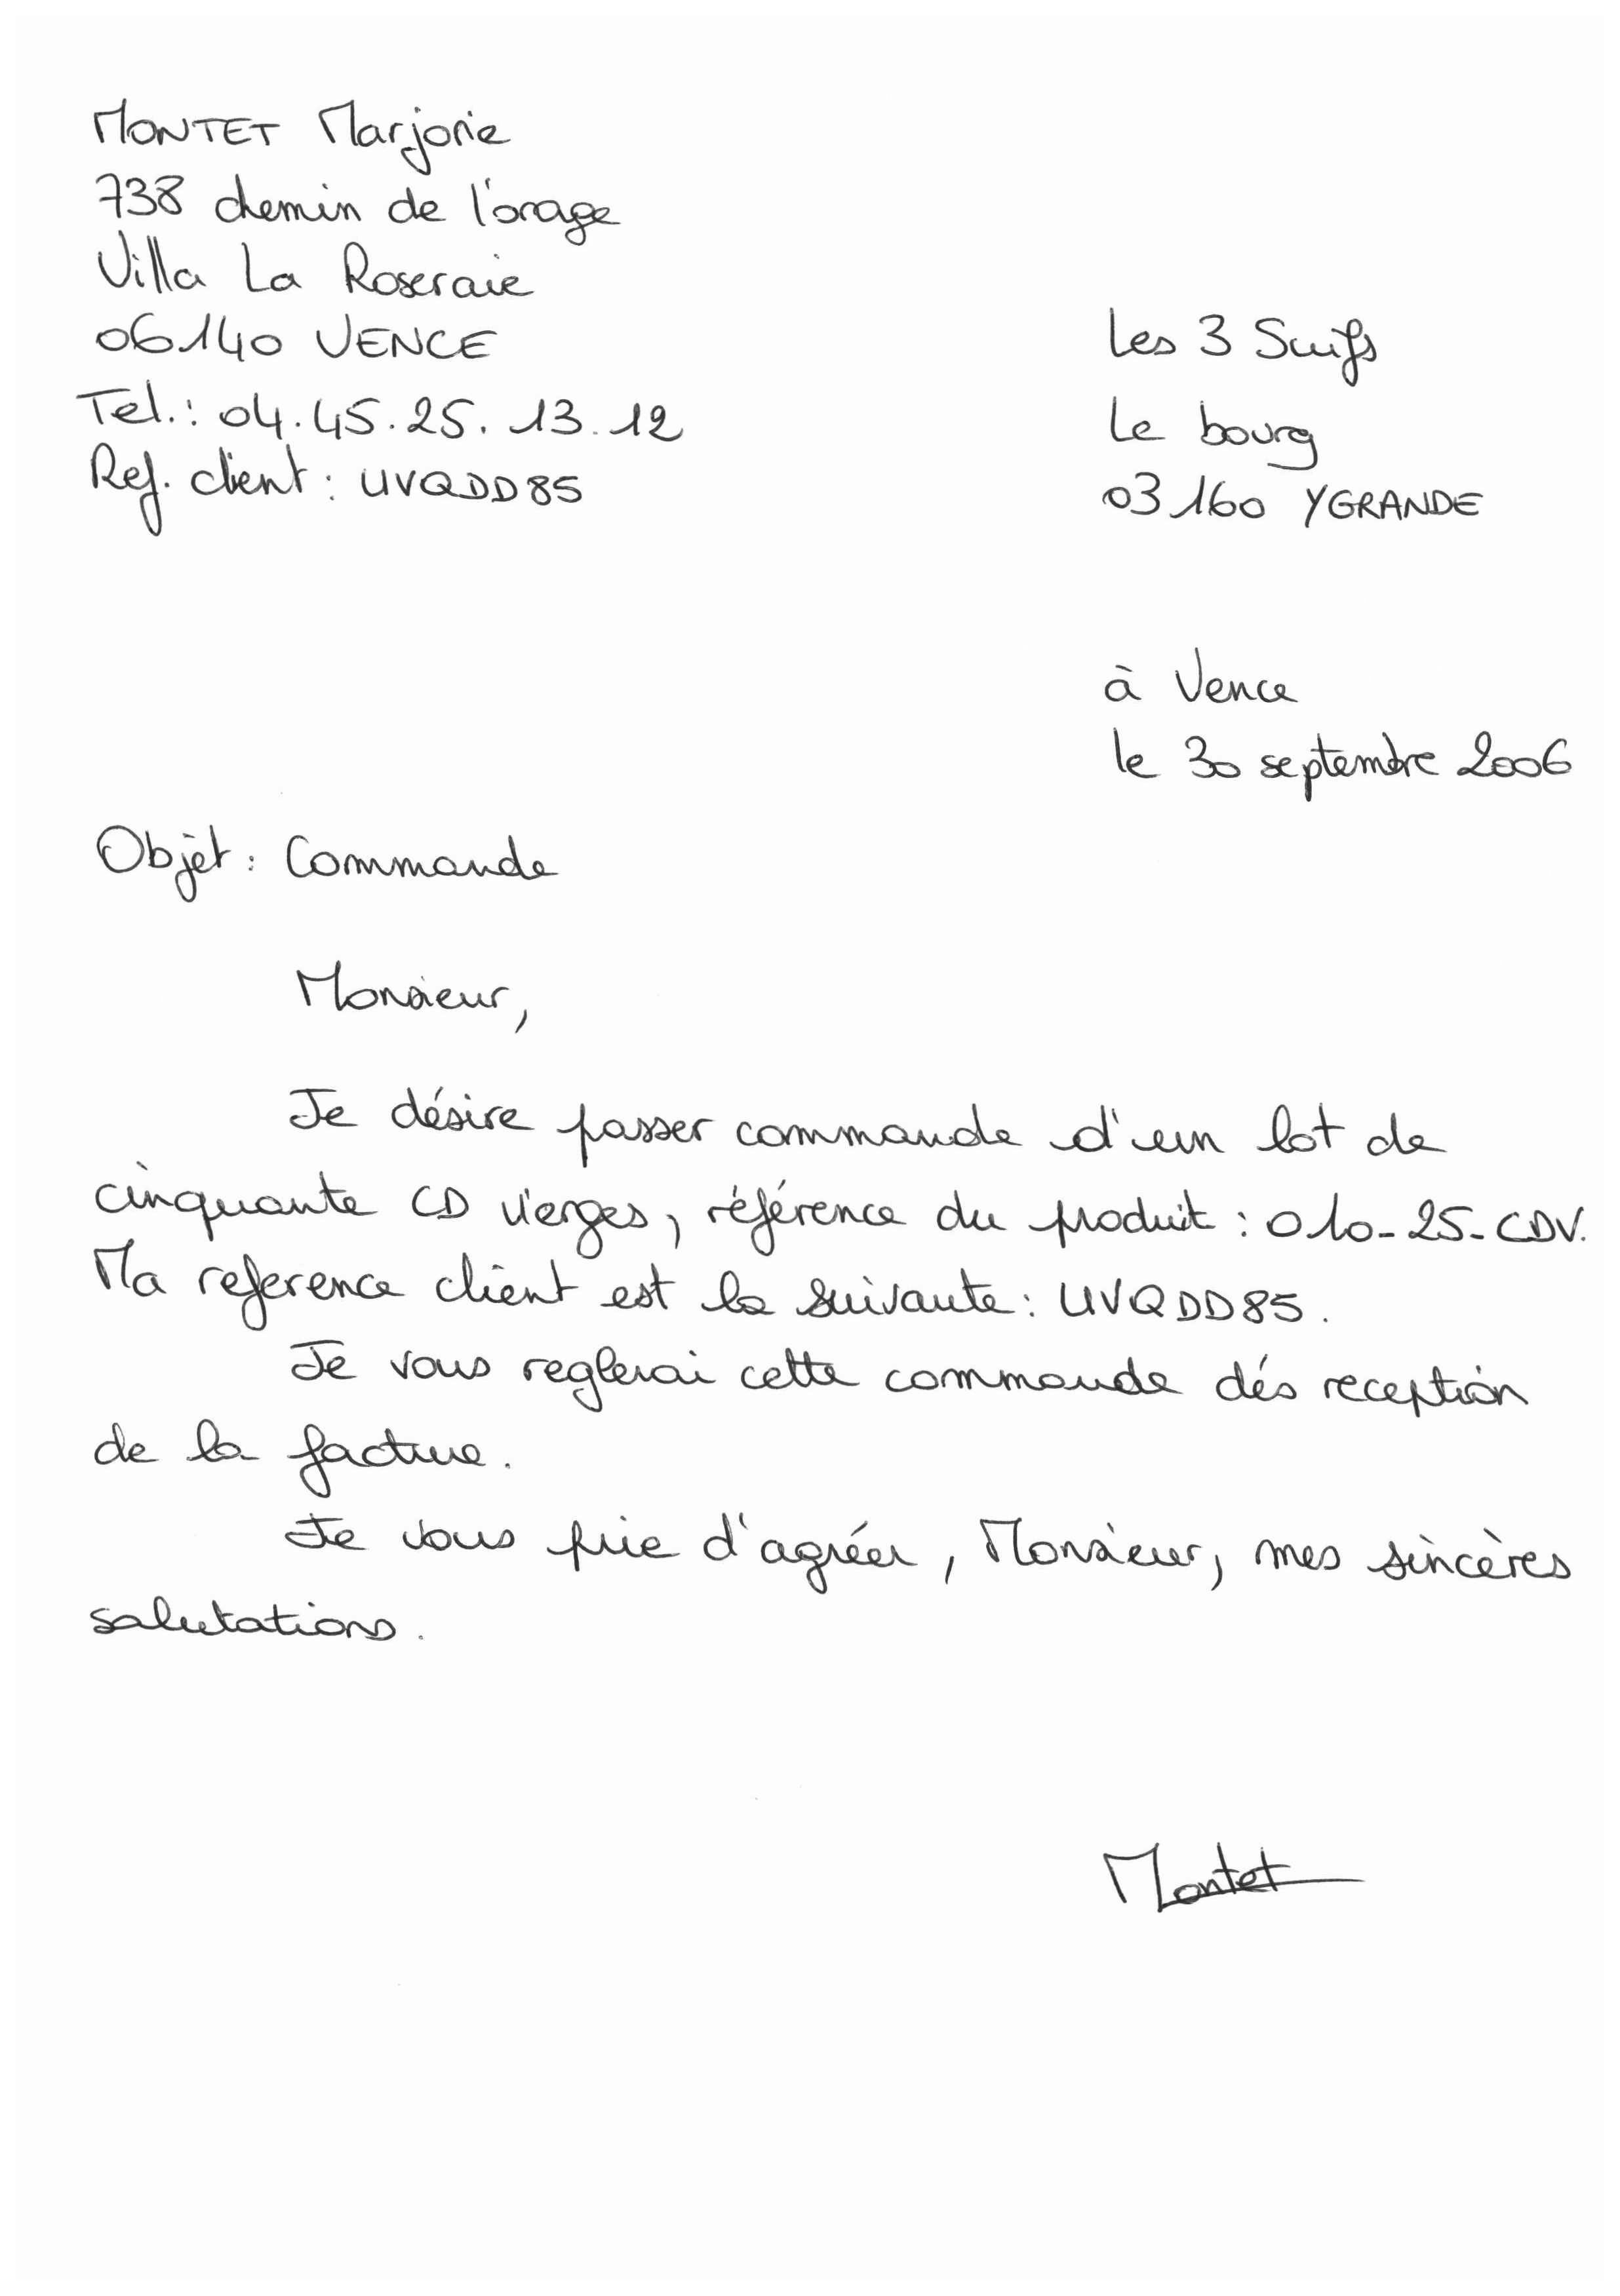 MONTET Marjorie
738 chemin de l'orage
Villa La Roseraie
06140 VENCE
Tel.: 04.45.25.13.12
Ref. client : UVQDD85
Les 3 Suifs
Le bourg
03160 YGRANDE
à Vence
le 30 septembre 2006
Objet : Commande
Monsieur,
Je désire passer commande d'un lot de
cinquante CD vierges, référence du produit : 010-25-CDV.
Ma reference client est la suivante : UVQDD85.
Je vous reglerai cette commande dés reception
de la facture.
Je vous prie d'agréer, Monsieur, mes sincères
salutations.
Montet